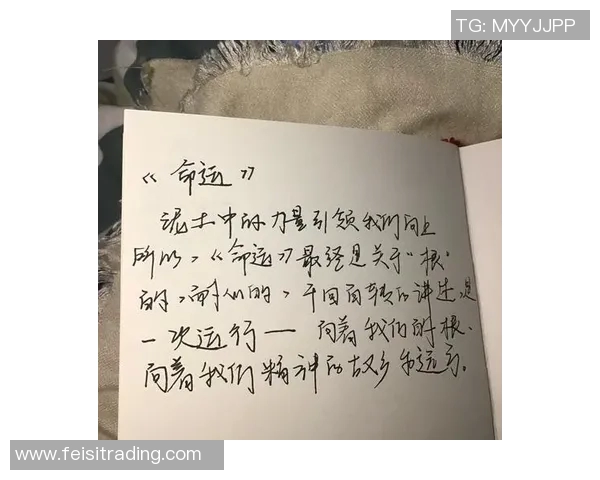 TG: MYYJJPP
《命运》
泥土中的力量引领我们向上
所以，《命运》最终是关于“根”
的，耐人的，千回百转的讲述，是
一次运行—向着我们的根、
向着我们精神的故乡和远方。
www.feisitrading.com